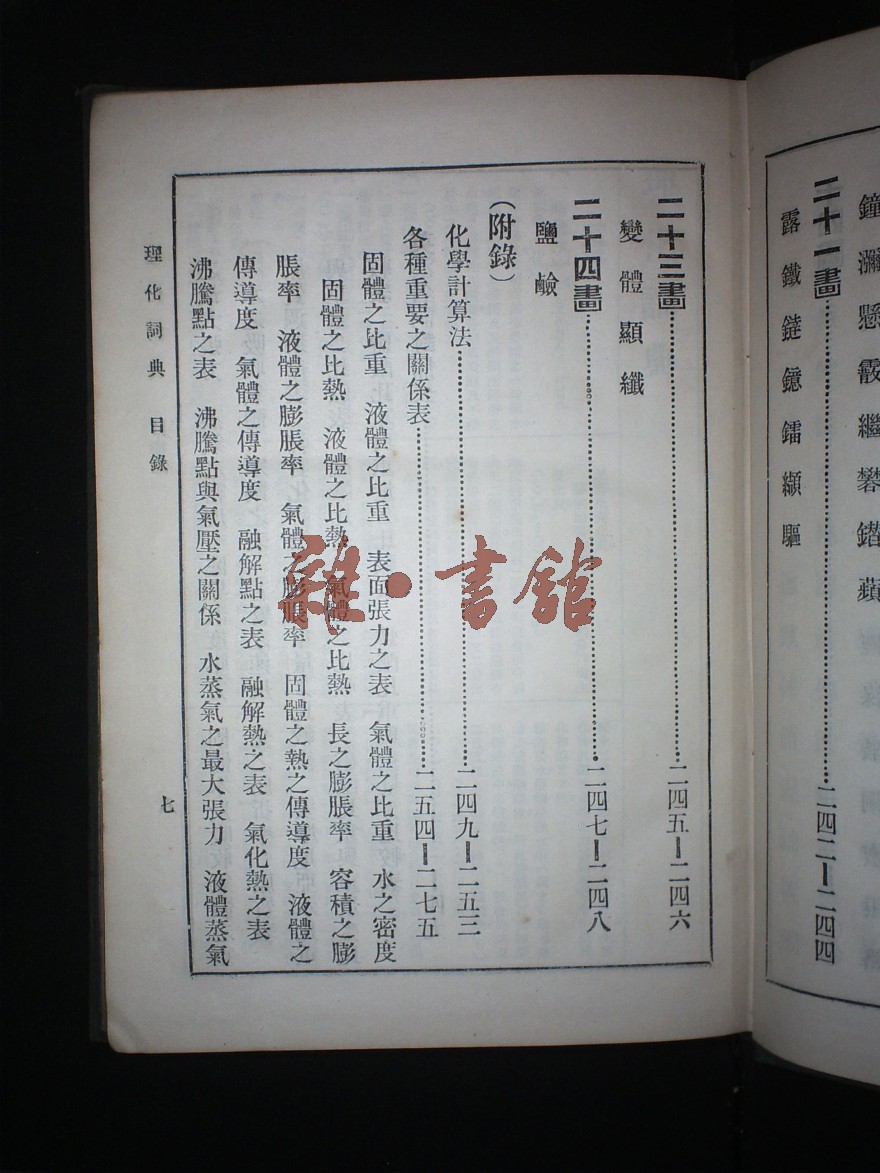 鐘瀰懸霰繼礬鐟蘋
二十一畫……二四二—二四四
露鐵鐽鐿鐳纈驅
二十三畫……二四五—二四六
變體顯纖
二十四畫……二四七—二四八
鹽鹼
（附錄）
化學計算法……二四九—二五三
各種重要之關係表……二五四—二七五
固體之比重 液體之比重 表面張力之表 氣體之比重 水之密度
固體之比熱 液體之比熱 氣體之比熱 長之膨脹率 容積之膨
脹率 液體之膨脹率 氣體之膨脹率 固體之熱之傳導度 液體之
傳導度 氣體之傳導度 融解點之表 融解熱之表 氣化熱之表
沸騰點之表 沸騰點與氣壓之關係 水蒸氣之最大張力 液體蒸氣
理化詞典 目錄 七
雜·書館